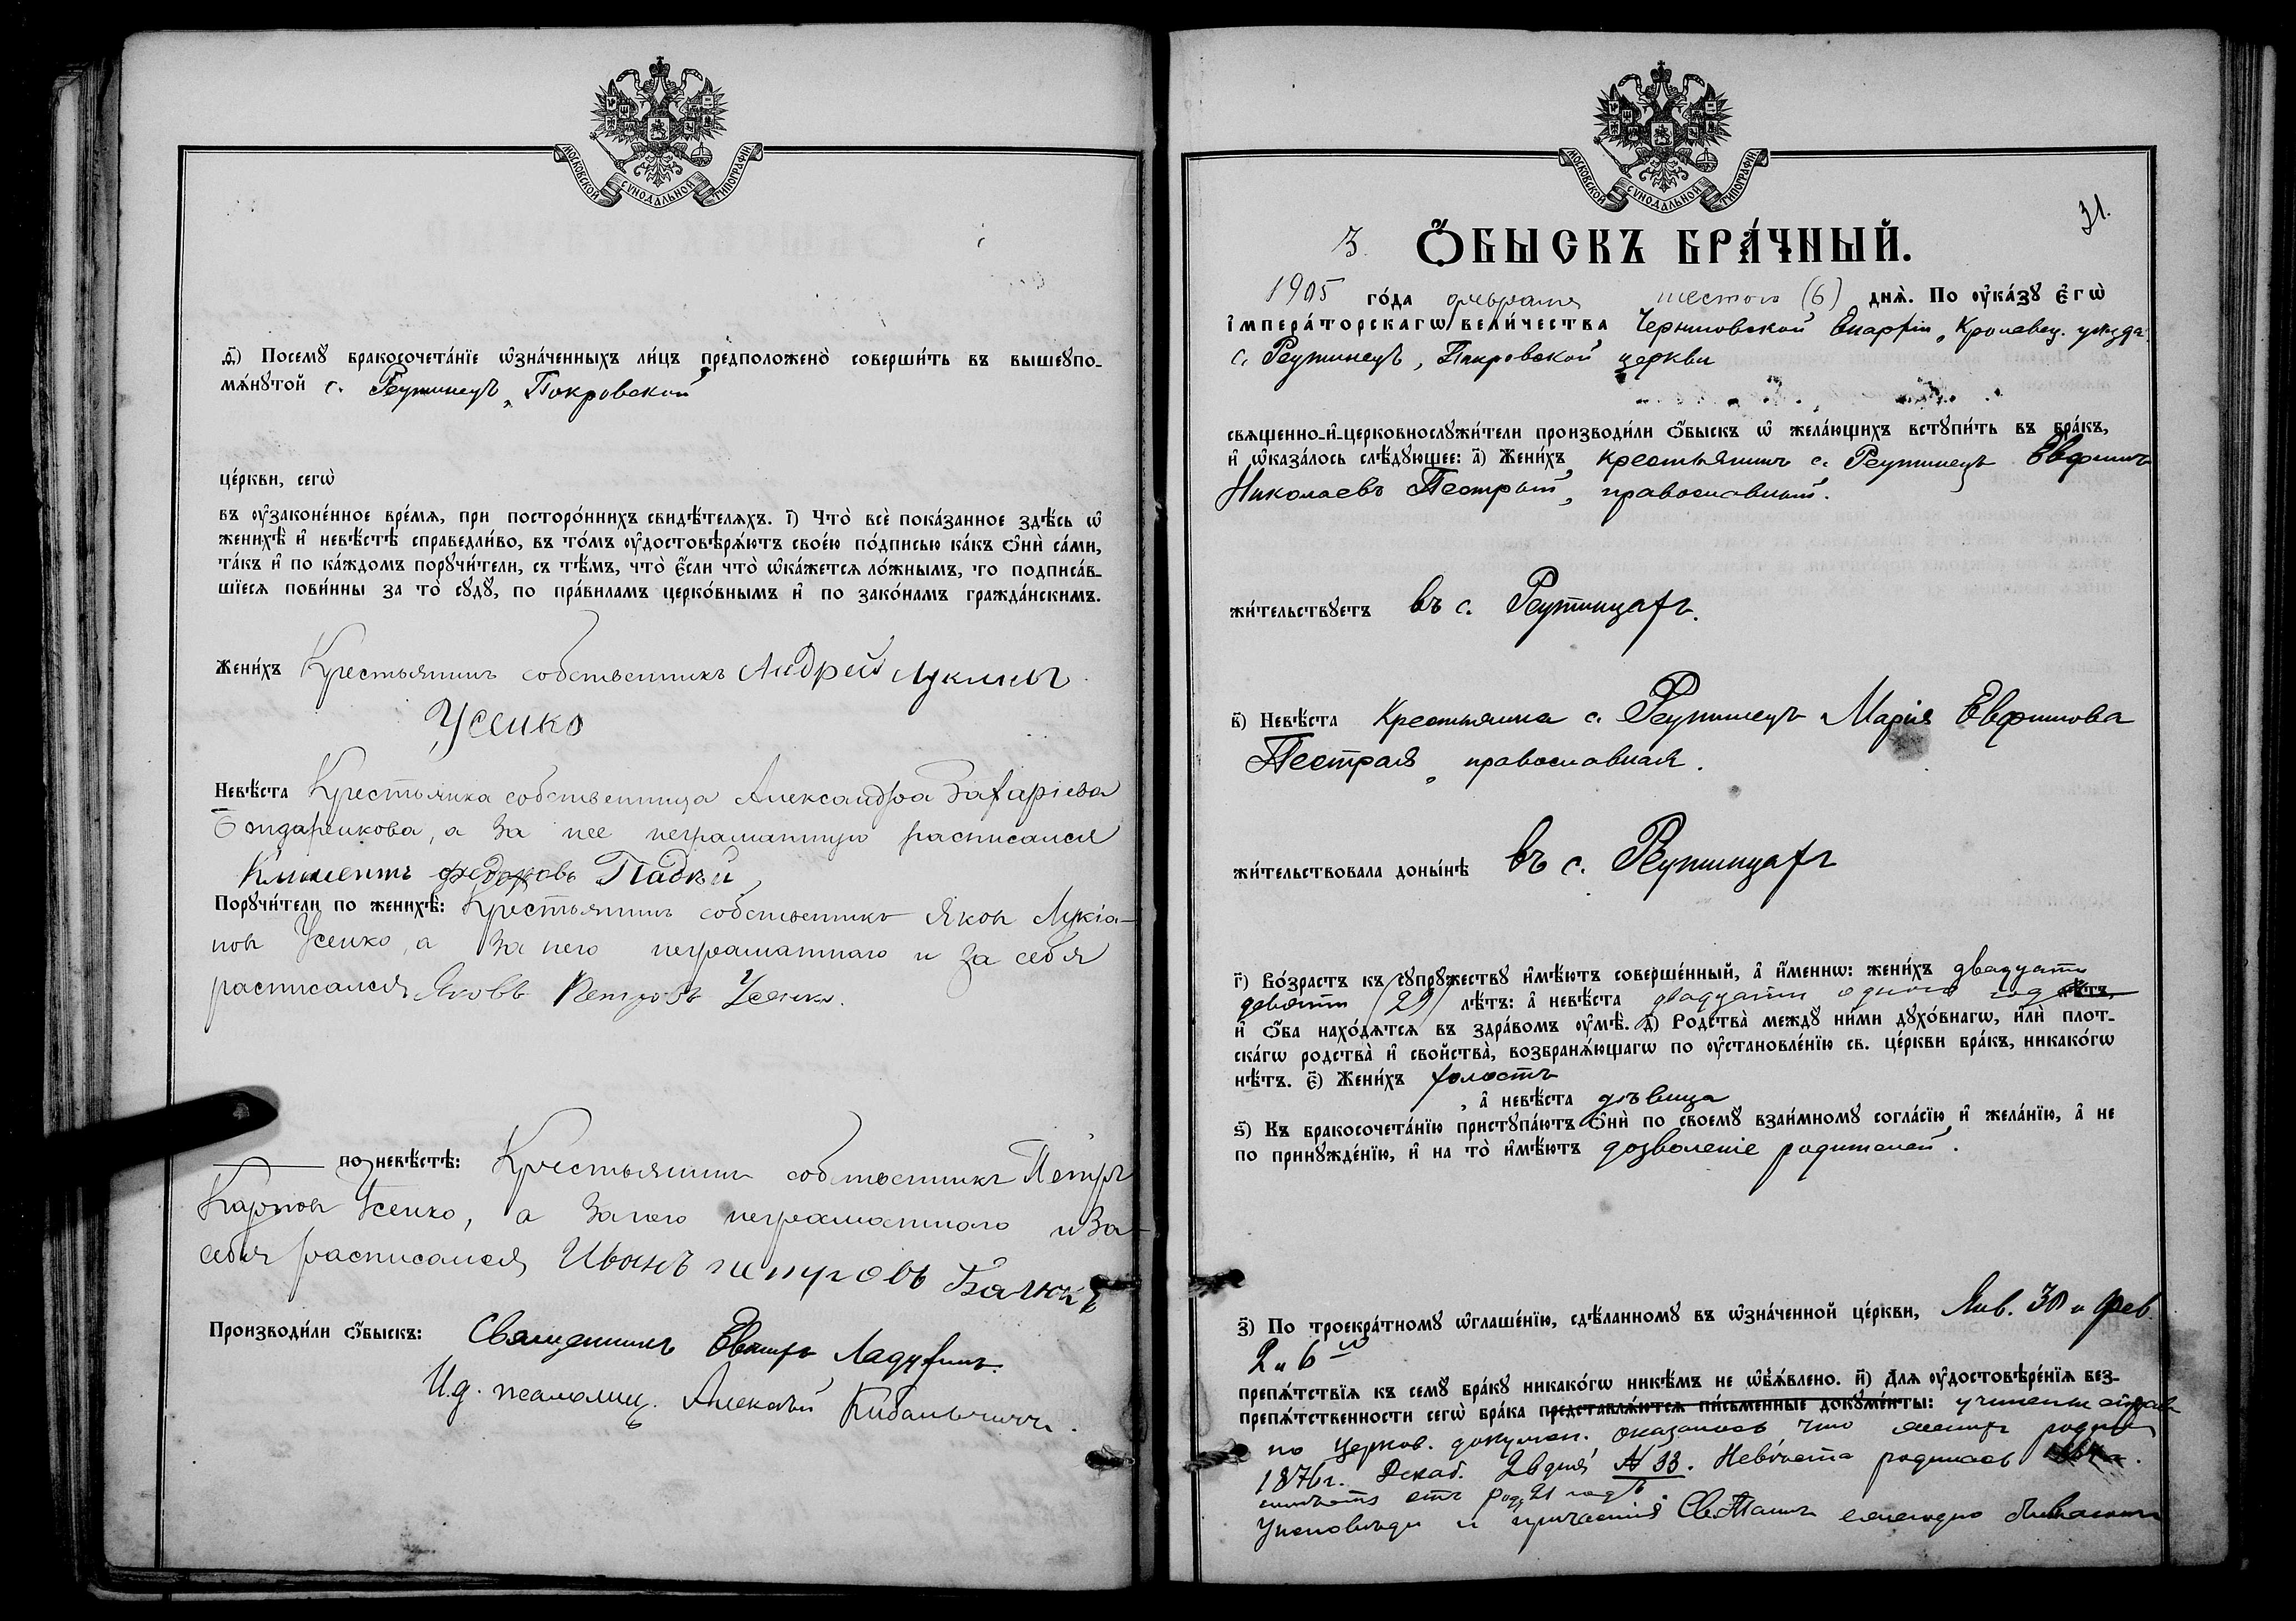 МОСКОВСКОЙ СѴНОДАЛЬНОЙ ТИПОГРАФІИ
д҃і) Посемꙋ бракосочета́нїе ѡ҆зна́ченныхъ ли́цъ предположено̀ соверши́ть въ вышеꙋпо-
мѧ́нꙋтой с. Реутинецъ, Покровской
це́ркви, сегѡ̀
въ ᲂу҆зако́не́нное вре́мѧ, при посторо́ннихъ свидѣ́телѧхъ. і҃) Что̀ всѐ пока́занное здѣ́сь ѡ҆
женихѣ̀ и҆ невѣ́стѣ справедли́во, въ то́мъ ᲂу҆достовѣрѧ́ютъ свое́ю по́дписью ка́къ ѻ҆нѝ са́ми,
та́къ и҆ по ка́ждомъ порꙋчи́тели, съ тѣ́мъ, что̀ є҆́сли что̀ ѡ҆ка́жетсѧ ло́жнымъ, то подписа́в-
шїесѧ пови́нны за то̀ сꙋдꙋ̀, по пра́виламъ церко́внымъ и҆ по зако́намъ гражда́нскимъ.
Жени́хъ Крестьянинъ собственникъ Андрей Лукинъ
Усенко
Невѣ́ста Крестьянка собственница Александра Захаріева
Бондаренкова, а за нее неграматную расписался
Климентъ Федоровъ Падкій
Порꙋчи́тели по женихѣ̀: Крестьянинъ собственникъ Яковъ Лукіа-
новъ Усенко, а за него неграматнаго и за себя
расписался Яковъ Петровъ Усенко.
по невѣ́стѣ: Крестьянинъ собственникъ Петръ
Карповъ Усенко, а за него неграматнаго и за
себя расписался Иванъ петровъ
Производи́ли ѻ҆́быскъ: Священникъ Ладухинъ.
И.д. псаломщ. Алексѣй
МОСКОВСКОЙ СѴНОДАЛЬНОЙ ТИПОГРАФІИ
31.
3. Ѻ҆́БЫСКЪ БРА́ЧНЫЙ.
1905 го́да февраля шестого (6) днѧ̀. По ᲂу҆ка́зꙋ є҆гѡ̀
і҆мпера́торскагѡ вели́чества Черниговской Епархіи, Кролевец. уѣзда
с. Реутинецъ, Покровской церкви
свѧщенно-и҆-церковнослꙋжи́тели производи́ли ѻ҆́быскъ ѡ҆ жела́ющихъ встꙋпи́ть въ бра́къ,
и҆ ѡ҆каза́лось слѣ́дꙋющее: а҃) Жени́хъ крестьянинъ с. Реутинецъ Евфимъ
Николаевъ Пестрый, православный.
жи́тельствꙋетъ въ с. Реутинцахъ.
в҃) Невѣ́ста Крестьянка с. Реутинецъ Марія Евфимова
Пестрая, православная.
жи́тельствовала доны́нѣ въ с. Реутинцахъ
г҃) Во́зрастъ къ сꙋпрꙋ́жествꙋ и҆мѣ́ютъ соверше́нный, а҆ и҆́менно: жени́хъ двадцати
девяти (29) лѣ́тъ: а҆ невѣ́ста двадцати одного год лѣ́тъ,
и҆ ѻ҆́ба нахо́дѧтсѧ въ здра́вомъ ᲂу҆мѣ̀. д҃) Родства̀ междꙋ ни́ми дꙋхо́внагѡ, и҆лѝ плот-
ска́гѡ родства̀ и҆ свойства̀, возбранѧ́ющагѡ по ᲂу҆становле́нїю св. це́ркви бра́къ, никако́гѡ
нѣ́тъ. є҃) Жени́хъ холостъ
, а҆ невѣ́ста дѣвица
ѕ҃) Къ бракосочета́нїю пристꙋпа́ютъ ѻ҆нѝ по своемꙋ̀ взаи́мномꙋ согла́сїю и҆ жела́нїю, а҆ не
по принꙋжде́нїю, и҆ на то̀ и҆мѣ́ютъ дозволеніе родителей.
з҃) По троекра́тномꙋ ѡ҆глаше́нїю, сдѣ́ланномꙋ въ ѡ҆зна́ченной це́ркви, Янв. 30 и фев.
2 и 6го
препѧ́тствїѧ къ семꙋ̀ бра́кꙋ никако́гѡ никѣ́мъ не ѡ҆б̾ѧ́влено. и҃) Длѧ ᲂу҆достовѣре́нїѧ без-
препѧ́тственности сегѡ̀ бра́ка представлѧ́ютсѧ пи́сьменные докꙋме́нты: учинены справк
по церков. докумен. оказалось что женихъ родил
1876 г. Декаб. 26 дня № 33. Невѣста родилась
отъ род. 21 годъ
У исповѣди и причастія Св. Таинъ ежегодно бываютъ